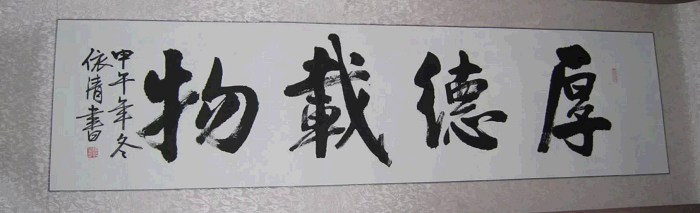 厚德載物
甲午年冬
依清書